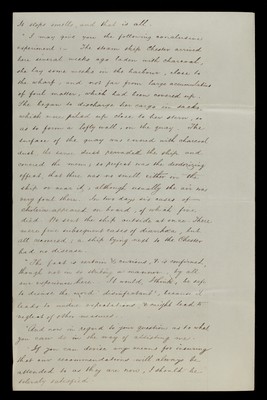 It stops smells, and that is all.
"I may give you the following coincidence
experiment :- The steam ship Chester arrived
here several weeks ago laden with charcoal,
she lay some weeks in the harbour, close to
the wharf, and not far from large accumulations
of foul matter, which had been covered up.
She began to discharge her cargo in sacks,
which were piled up close to her stern, so
as to form a lofty wall, on the quay. The
surface of the quay was covered with charcoal
dust. The same dust pervaded the ship and
covered the men; so perfect was the deodorizing
effect, that there was no smell either in the
ship or near it, although usually the air was
very foul there. In two days six cases of
cholera appeared on board, of which five
died. To sent the ship outside at once. There
were five subsequent cases of diarrhœa, but
all recovered, a ship lying next to the Chester
had no disease.
"The fact is certain & curious, & is confirmed,
though not in so striking a manner, by all
our experience here. It would, I think, be safe
to disuse the word "disinfectant", because it
leads to undue expectations & might lead to
neglect of other measures.
"And now in regard to your question as to what
you can do in the way of assisting me.
"If you can devise any means, for insuring
that our recommendations will always be
attended to as they are now, I should be
entirely satisfied